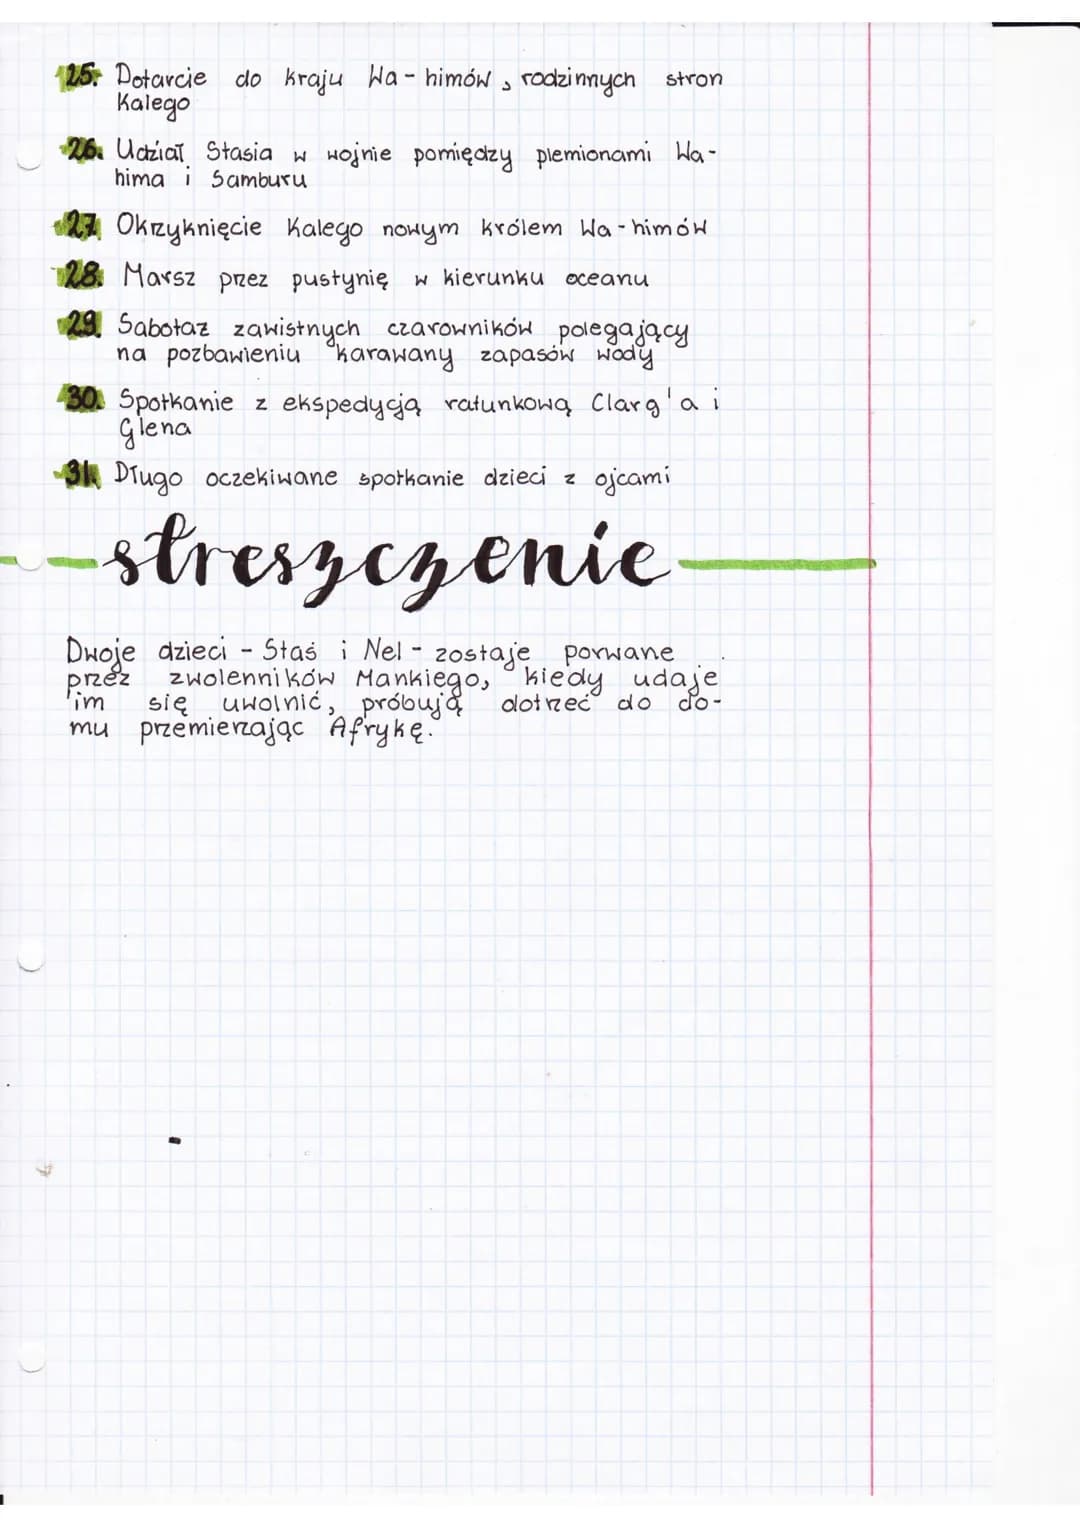 25. Dotarcie do kraju Wa-himów, rodzinnych stron
Kalego
26. Udział Stasia w wojnie pomiędzy plemionami Wa-
hima i Samburu
27. Okrzyknięcie Kalego nowym królem Wa-himów
28. Marsz przez pustynię w kierunku oceanu
29. Sabotaz zawistnych czarowników polegający
na pozbawieniu karawany zapasów wody
30. Spotkanie z ekspedycją ratunkową Clarg'a i
Glena
31. Długo oczekiwane spotkanie dzieci z ojcami
streszczenie
Dwoje dzieci - Staś i Nel - zostaje porwane
przez zwolenników Mankiego, kiedy udaje
im się uwolnić, próbują dotrzeć do do-
mu przemierzając Afrykę.